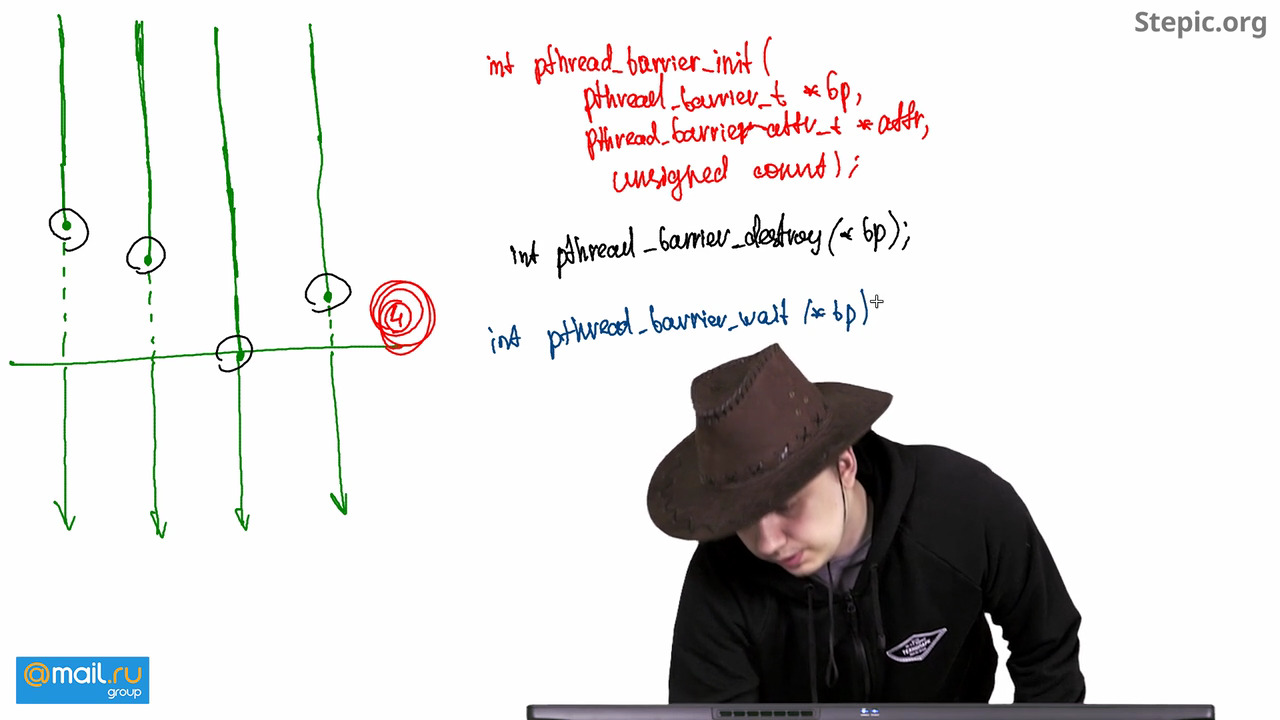 Stepic.org
int pthread_barrier_init(
pthread_barrier_t *bp,
pthread_barrier_attr_t *attr,
unsigned count);
int pthread_barrier_destroy(* bp);
4
int pthread_barrier_wait (* bp)
@mail.ru
group